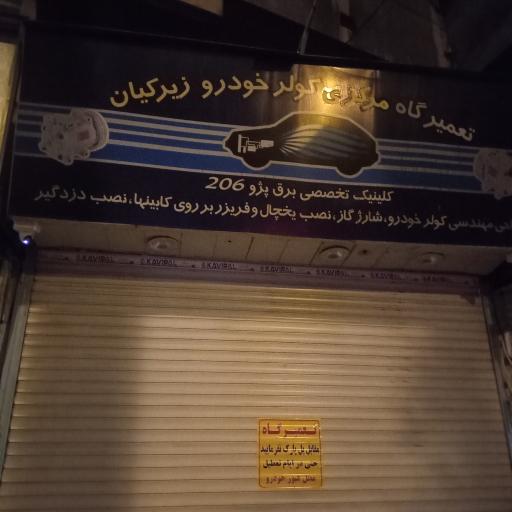 تعمیرگاه مرکزی کولر خودرو زیرکیان
کلینیک تخصصی برق پژو 206
مهندسی کولر خودرو، شارژ گاز، نصب یخچال وفریزر بر روی کابینها، نصب دزدگیر
KAVIPAL KAVIPAL KAVIPAL KAVIPAL KAVIPAL KAVIPAL
تعمیرگاه
مقابل پل پارک نفرمایید
حتی در ایام تعطیل
محل عبور خودرو